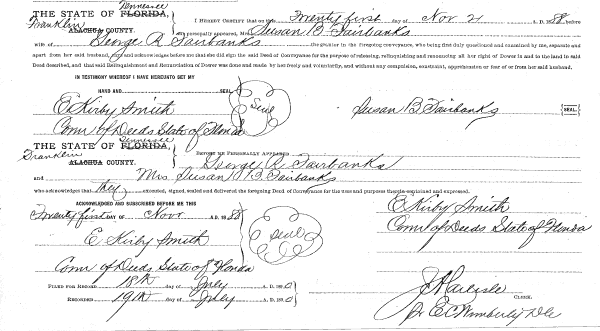 Tennessee
THE STATE OF FLORIDA,
Franklin
ALACHUA COUNTY.
I HEREBY CERTIFY that on this Twenty first day of Nov 21 A. D. 1888, before
me personally appeared, Mrs. Susan B. Fairbanks
wife of George R. Fairbanks the grantor in the foregoing conveyance, who being first duly questioned and examined by me, separate and
apart from her said husband, did acknowledge before me that she did sign the said Deed of Conveyance for the purpose of releasing, relinquishing and renouncing all her right of Dower in and to the land in said
Deed described, and that said Relinquishment and Renunciation of Dower was done and made by her freely and voluntarily, and without any compulsion, constraint, apprehension or fear of or from her said husband.
IN TESTIMONY WHEREOF I HAVE HEREUNTO SET MY
HAND AND SEAL
E Kirby Smith
Seal
Susan B. Fairbanks
SEAL
Com of Deeds State of Florida
Tennessee
THE STATE OF FLORIDA,
Franklin
ALACHUA COUNTY.
BEFORE ME PERSONALLY APPEARED
George R. Fairbanks
and Mrs Susan B. Fairbanks
who acknowledged that they executed, signed, sealed and delivered the foregoing Deed of Conveyance for the uses and purposes therein explained and expressed.
ACKNOWLEDGED AND SUBSCRIBED BEFORE ME THIS
Twenty first DAY OF Novr A. D. 1888
E Kirby Smith
Seal
E Kirby Smith
Com of Deeds State of Florida
Com of Deeds State of Florida
FILED FOR RECORD 18th day of July A. D. 1890
RECORDED 19th day of July A. D. 1890
J A Carlisle
CLERK.
Pr E C Wimberly D.C.